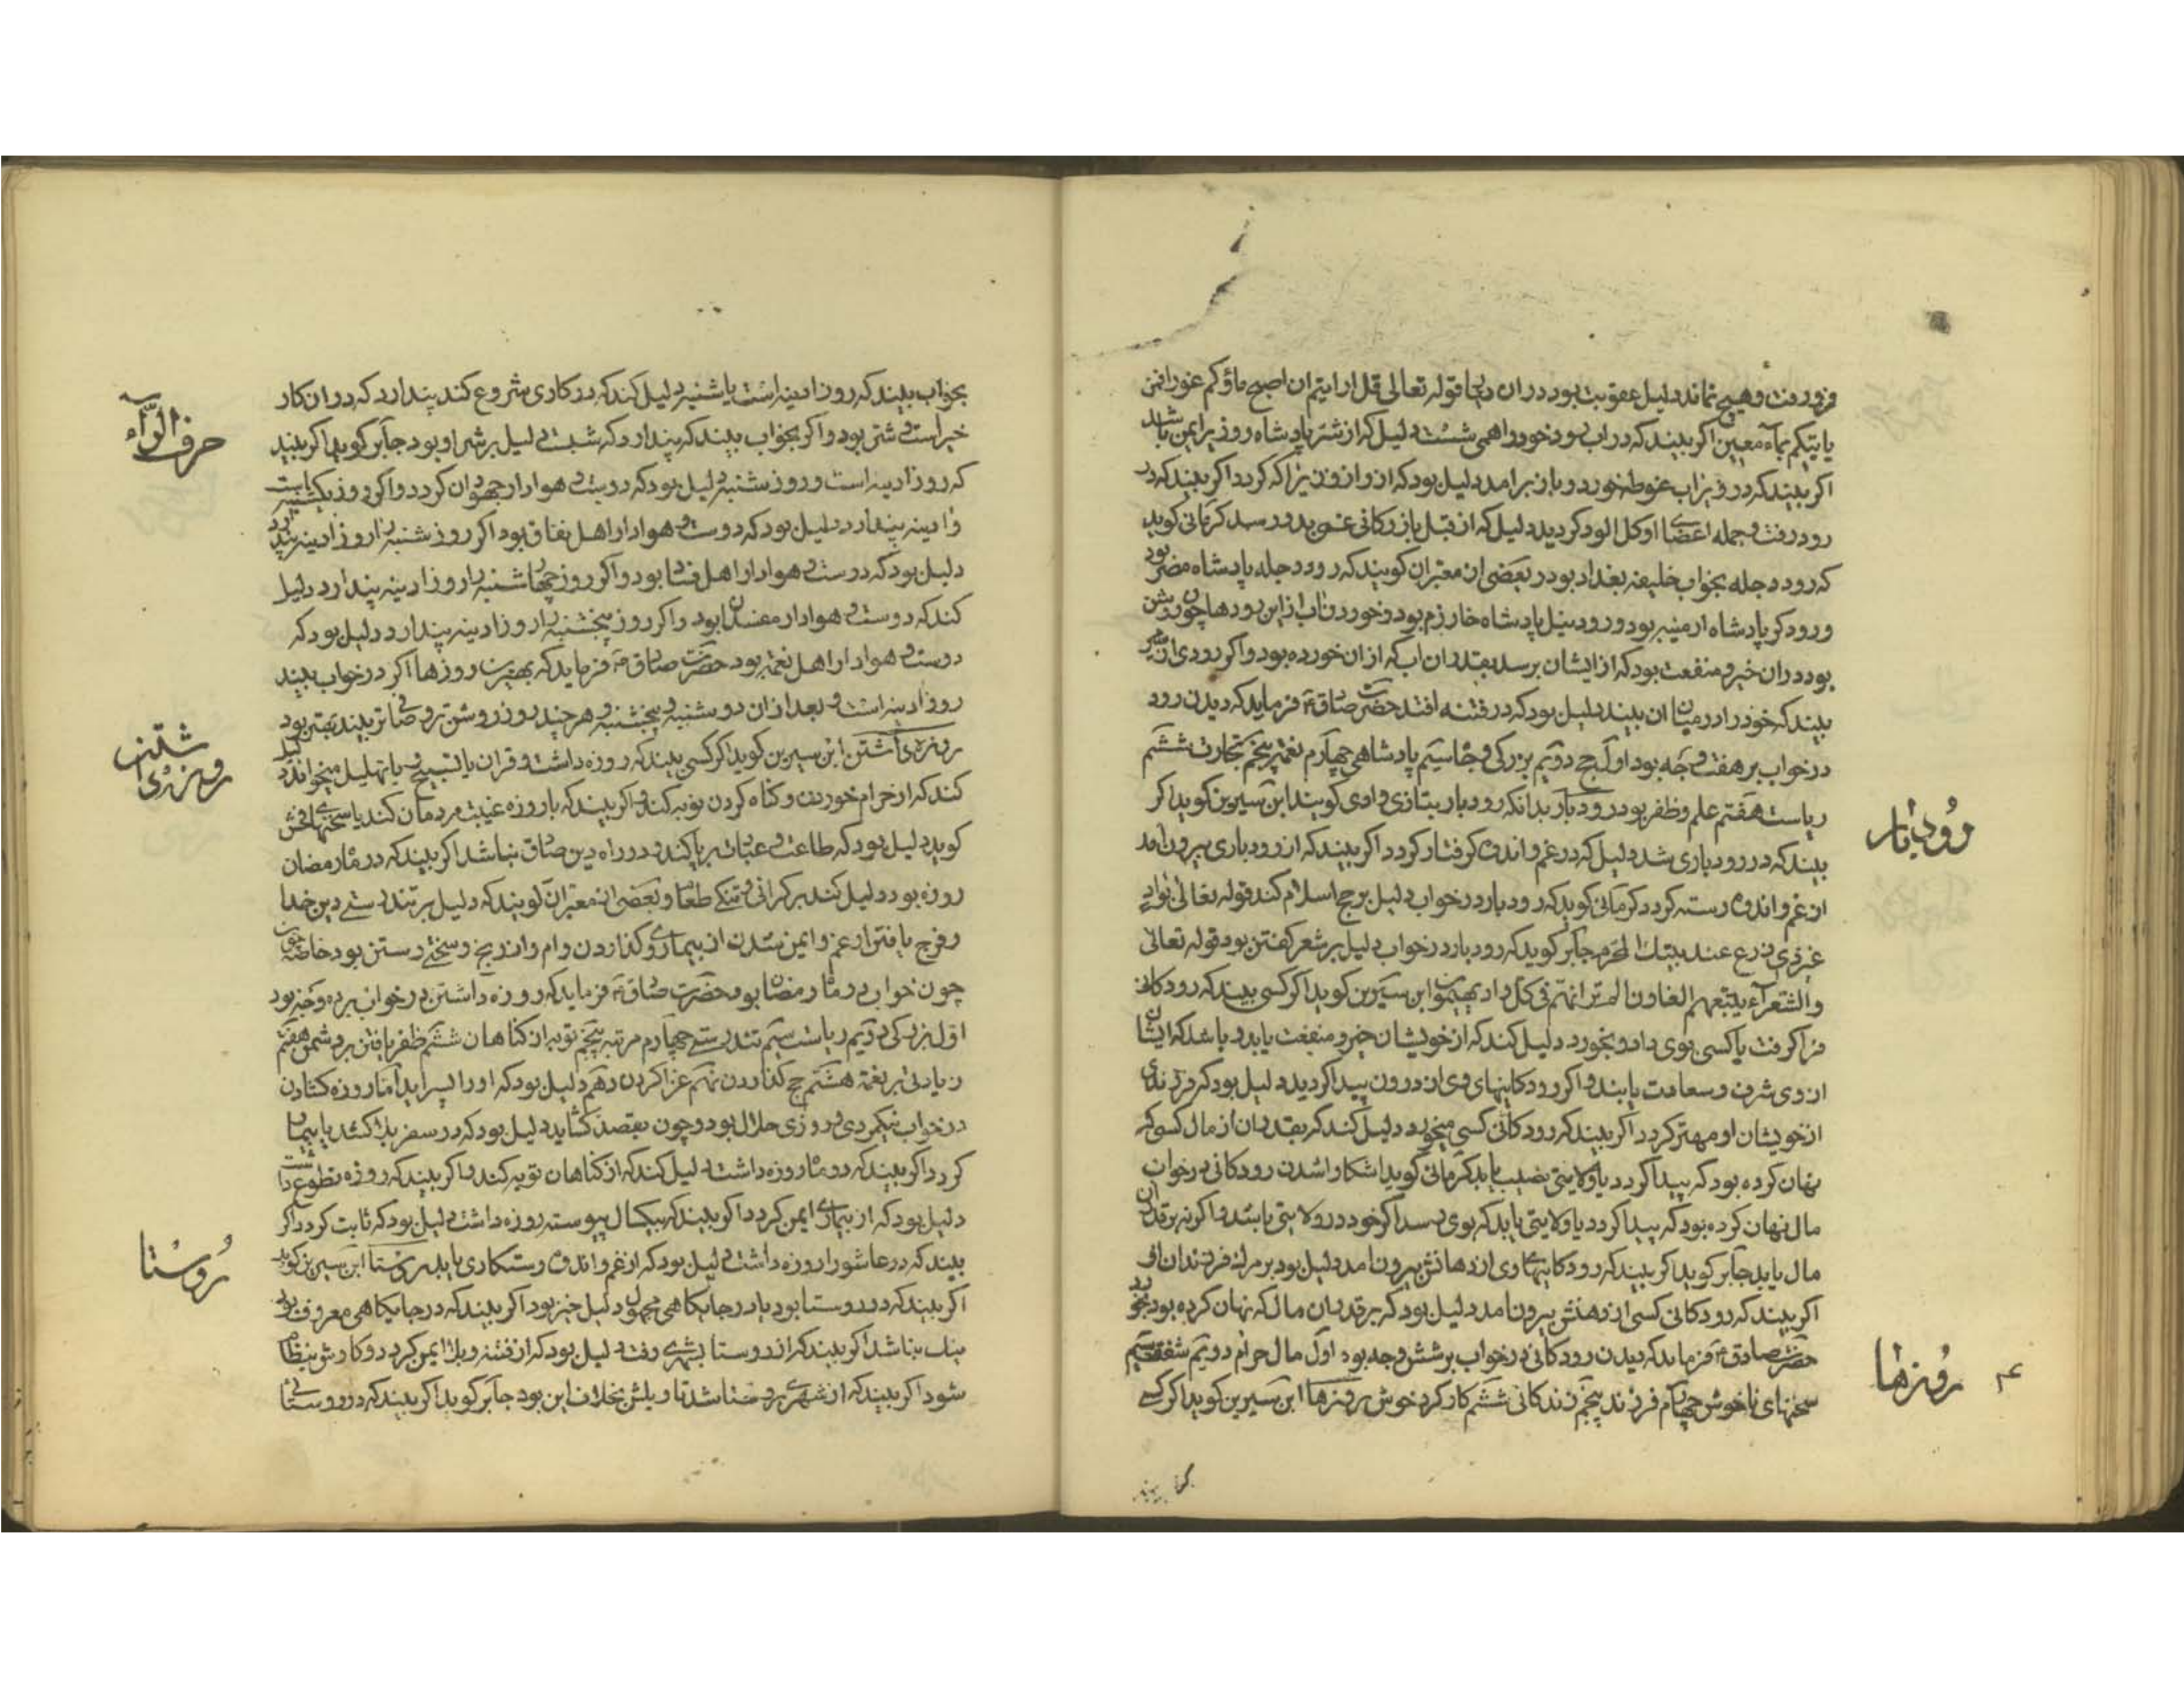 فرو رفت و هیچ نماند دلیل عقوبت بود در ان دیار قوله تعالی قل ارایتم ان اصبح ماؤکم غورا فمن
یاتیکم بماء معین اکر بیند که در اب رود خود را همی شست دلیل که از شر پادشاه روز بر ایمن باشد
اکر بیند که در زیر اب غوطه خورد و باز بر امد دلیل بود که اکر بیند که در
رود رفت و جمله اعضای او کل الود کردید دلیل که از قبل بازرکانی غمی بدو رسد کرمانی کوید
که رود دجله بخواب خلیفه بغداد بود و بعضی از معبران کویند که رود دجله پادشاه مصر بود
و رود کر پادشاه ارمنیه بود و رود نیل پادشاه خارزم بود و خوردن اب از این رودها چون روشن
بود در ان خیر و منفعت بود که از ایشان برسد بقدر ان اب که از ان خورده بود و اکر رودی
بیند که خود را در میان ان بیند دلیل بود که در فتنه افتد حضرت صادق ع فرماید که دیدن رود
در خواب بر هفت وجه بود اول حج دویم بزرکی و جاه سیم پادشاهی چهارم نعمت پنجم تجارت ششم
ریاست هفتم علم و ظفر بود رودبار بدانکه رودبار بتازی وادی کویند ابن سیرین کوید اکر
بیند که در رودباری شد دلیل که در غم و اندوه کرفتار کردد اکر بیند که از رودباری بیرون امد
از غم و اندوه رسته کردد کرمانی کوید که رودبار در خواب دلیل بر حج اسلام کند قوله تعالی بواد
غیر ذی زرع عند بیتک المحرم جابر کوید که رودبار در خواب دلیل بر شعر کفتن بود قوله تعالی
والشعرآء یتبعهم الغاون الم تر انهم فی کل واد یهیمون ابن سیرین کوید اکر کسی بیند که رودکانی
فرا کرفت یا کسی بوی داد و بخورد دلیل کند که از خویشان خیر و منفعت یابد و باشد که ایشان
از وی شرف و سعادت یابند و اکر رودکانیهای وی از درون پیدا کردید دلیل بود که فرزندی
از خویشان او مهتر کردد اکر بیند که رودکانی کسی میخورد دلیل کند که بقدر ان از مال کسی که
نهان کرده بود که پیدا کردد یا ولایتی نصیب یابد کرمانی کوید اشکارا شدن رودکانی در خواب
مال نهان کرده بود که پیدا کردد یا ولایتی یابد که بوی رسد اکر خود در ولایتی باشد و اکر نه بر قدر ان
مال یابد جابر کوید اکر بیند که رودکانیهای وی از دهانش بیرون امد دلیل بود بر مرک فرزندان او
اکر بیند که رودکانی کسی از دهنش بیرون امد دلیل بود که بر قدر ان مال که نهان کرده بود بخورد
حضرت صادق ع فرماید که دیدن رودکانی در خواب بر شش وجه بود اول مال حرام دویم شفقت سیم
سخنهای ناخوش چهارم فرزند پنجم زندکانی ششم کار کرد خوش روزها ابن سیرین کوید اکر کسی
رودبار
روزها
بخواب بیند که روز ادینه است یا شنبه دلیل کند که در کاری شروع کند پندارد که در ان کار
خیر است و شر بود و اکر بخواب بیند که پندارد که شب دلیل بر شر او بود جابر کوید اکر بیند
که روز ادینه است و روز شنبه دلیل بود که دوست و هوادار جهودان کردد و اکر روز یکشنبه است
و ادینه پندارد دلیل بود که دوست و هوادار اهل نفاق بود اکر روز شنبه را روز ادینه پندارد
دلیل بود که دوست و هوادار اهل فساد بود و اکر روز چهارشنبه را روز ادینه پندارد دلیل
کند که دوست و هوادار مفسدان بود و اکر روز پنجشنبه را روز ادینه پندارد دلیل بود که
دوست و هوادار اهل نعمت بود حضرت صادق ع فرماید که بهترین روزها اکر در خواب بیند
روز ادینه است و بعد از ان دوشنبه و پنجشنبه و هر چند روز روشن تر و صافی تر بیند بهتر بود
روزه داشتن ابن سیرین کوید اکر کسی بیند که روزه داشت و قران یا تسبیح و یا تهلیل میخواند دلیل
کند که از حرام خوردن و کناه کردن توبه کند و اکر بیند که با روزه غیبت مردمان کند یا سخنهای فحش
کوید دلیل بود که طاعت و عبادت بریا کند و در راه دین صادق نباشد اکر بیند که در ماه رمضان
روزه بود دلیل کند بر کرانی و تنکی طعام و بعضی از معبران کویند که دلیل بر تندرستی دین خدا
و فرج یافتن از غم و ایمن شدن از بیماری و کذاردن وام و از رنج و سختی رستن بود خاصه
چون خواب در ماه رمضان بود حضرت صادق ع فرماید که روزه داشتن در خواب بر ده وجه بود
اول بزرکی دویم ریاست سیم تندرستی چهارم مرتبه پنجم توبه از کناهان ششم ظفر یافتن بر دشمن هفتم
زیادتی بر نعمت هشتم حج کذاردن نهم غزا کردن دهم دلیل بود که او را پسر اید اما روزه کشادن
در خواب نیکمردی و روزی حلال بود و چون بقصد کشاید دلیل بود که در سفر یا بیمار
کردد اکر بیند که دو ماه روزه داشت دلیل کند که از کناهان توبه کند و اکر بیند که روزه تطوع داشت
دلیل بود که از بیماری ایمن کردد اکر بیند که یکسال پیوسته روزه داشت دلیل بود که تائب کردد اکر
بیند که در عاشورا روزه داشت دلیل بود که از غم و اندوه رستکاری یابد روستا ابن سیرین کوید
اکر بیند که در روستا بود یا در جایکاهی مجهول دلیل خیر بود اکر بیند که در جایکاهی معروف بود
نیک نباشد اکر بیند که از روستا بشهری رفت دلیل بود که از فتنه و بلا ایمن کردد و کارش بنظام
شود اکر بیند که از شهری بروستا شد تاویلش بخلاف این بود جابر کوید اکر بیند که در روستائی
حرف الرآء
روزه داشتن
روستا